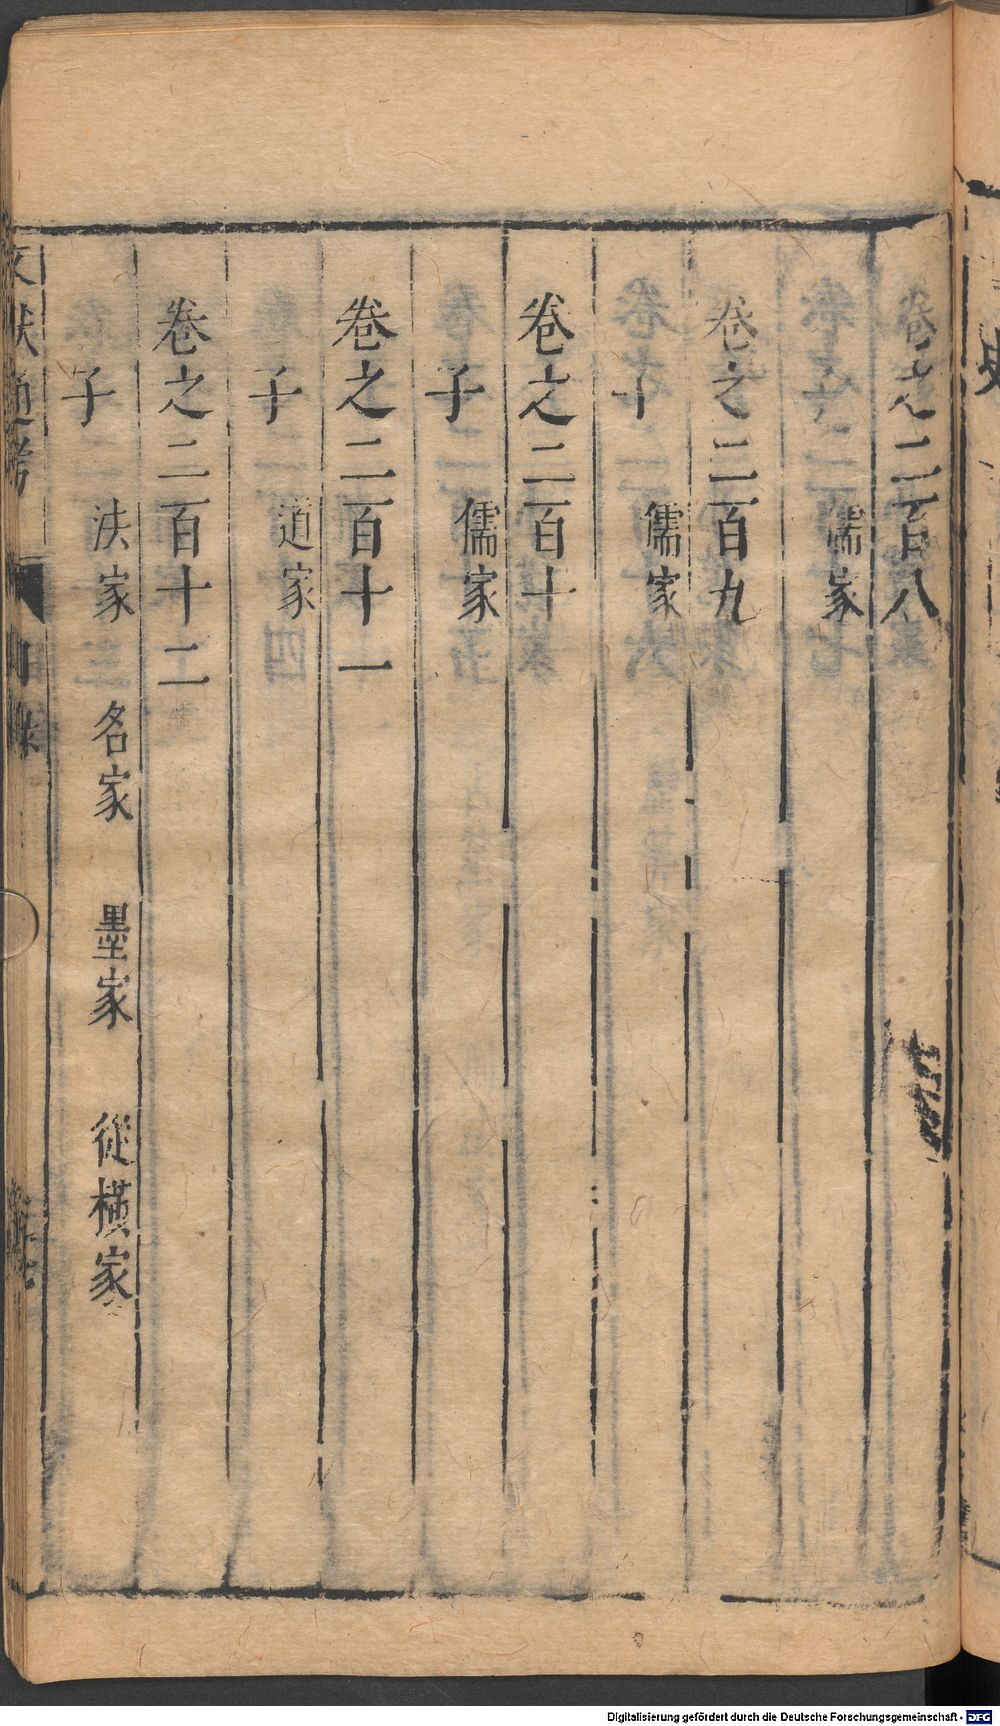 卷之二百八
儒家
卷之二百九
子 儒家
卷之二百十
子 儒家
卷之二百十一
子 道家
卷之二百十二
子 法家 名家 墨家 從橫家
文獻通考 目錄
Digitalisierung gefördert durch die Deutsche Forschungsgemeinschaft - DFG